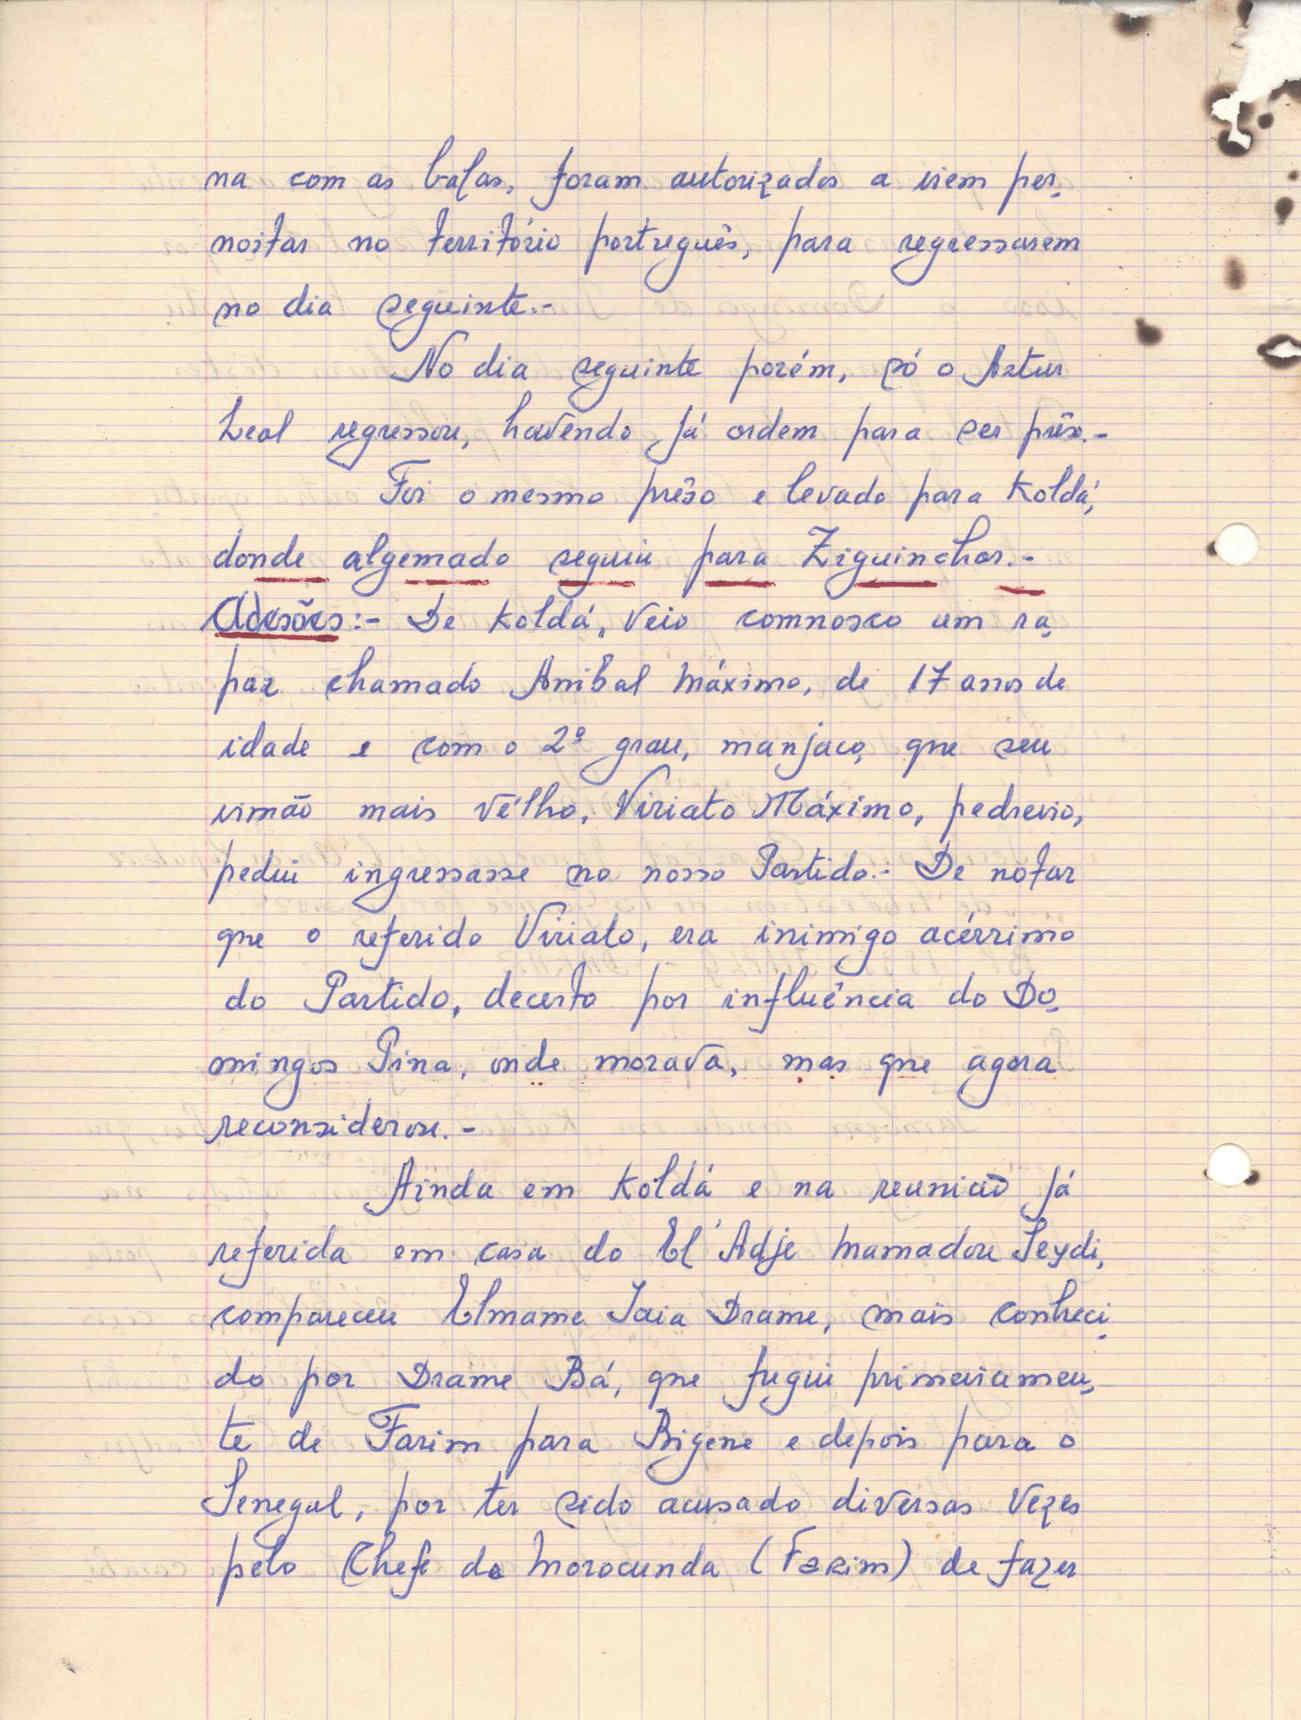 na com as balas, foram autorizados a irem per-
noitar no território português, para regressarem
no dia seguinte.-
No dia seguinte porém, só o Artur
Leal regressou, havendo já ordem para ser prêso.-
Foi o mesmo prêso e levado para Koldá,
donde algemado seguiu para Ziguinchor.-
Adesões:- De Koldá, veio comnosco um ra-
paz chamado Anibal Máximo, de 17 anos de
idade e com o 2º grau, manjaco, que seu
irmão mais vélho, Viriato Máximo, pedreiro,
pediu ingressasse no nosso Partido.- De notar
que o referido Viriato, era inimigo acérrimo
do Partido, decerto por influência do Do-
mingos Pina, onde morava, mas que agora
reconsiderou.-
Ainda em Koldá e na reunião já
referida em casa do El'Adje Mamadou Seydi,
compareceu Elmame Iaia Drame, mais conheci-
do por Drame Bá, que fugiu primeiramen-
te de Farim para Bigene e depois para o
Senegal, por ter sido acusado diversas vezes
pelo Chefe de Morocunda (Farim) de fazer